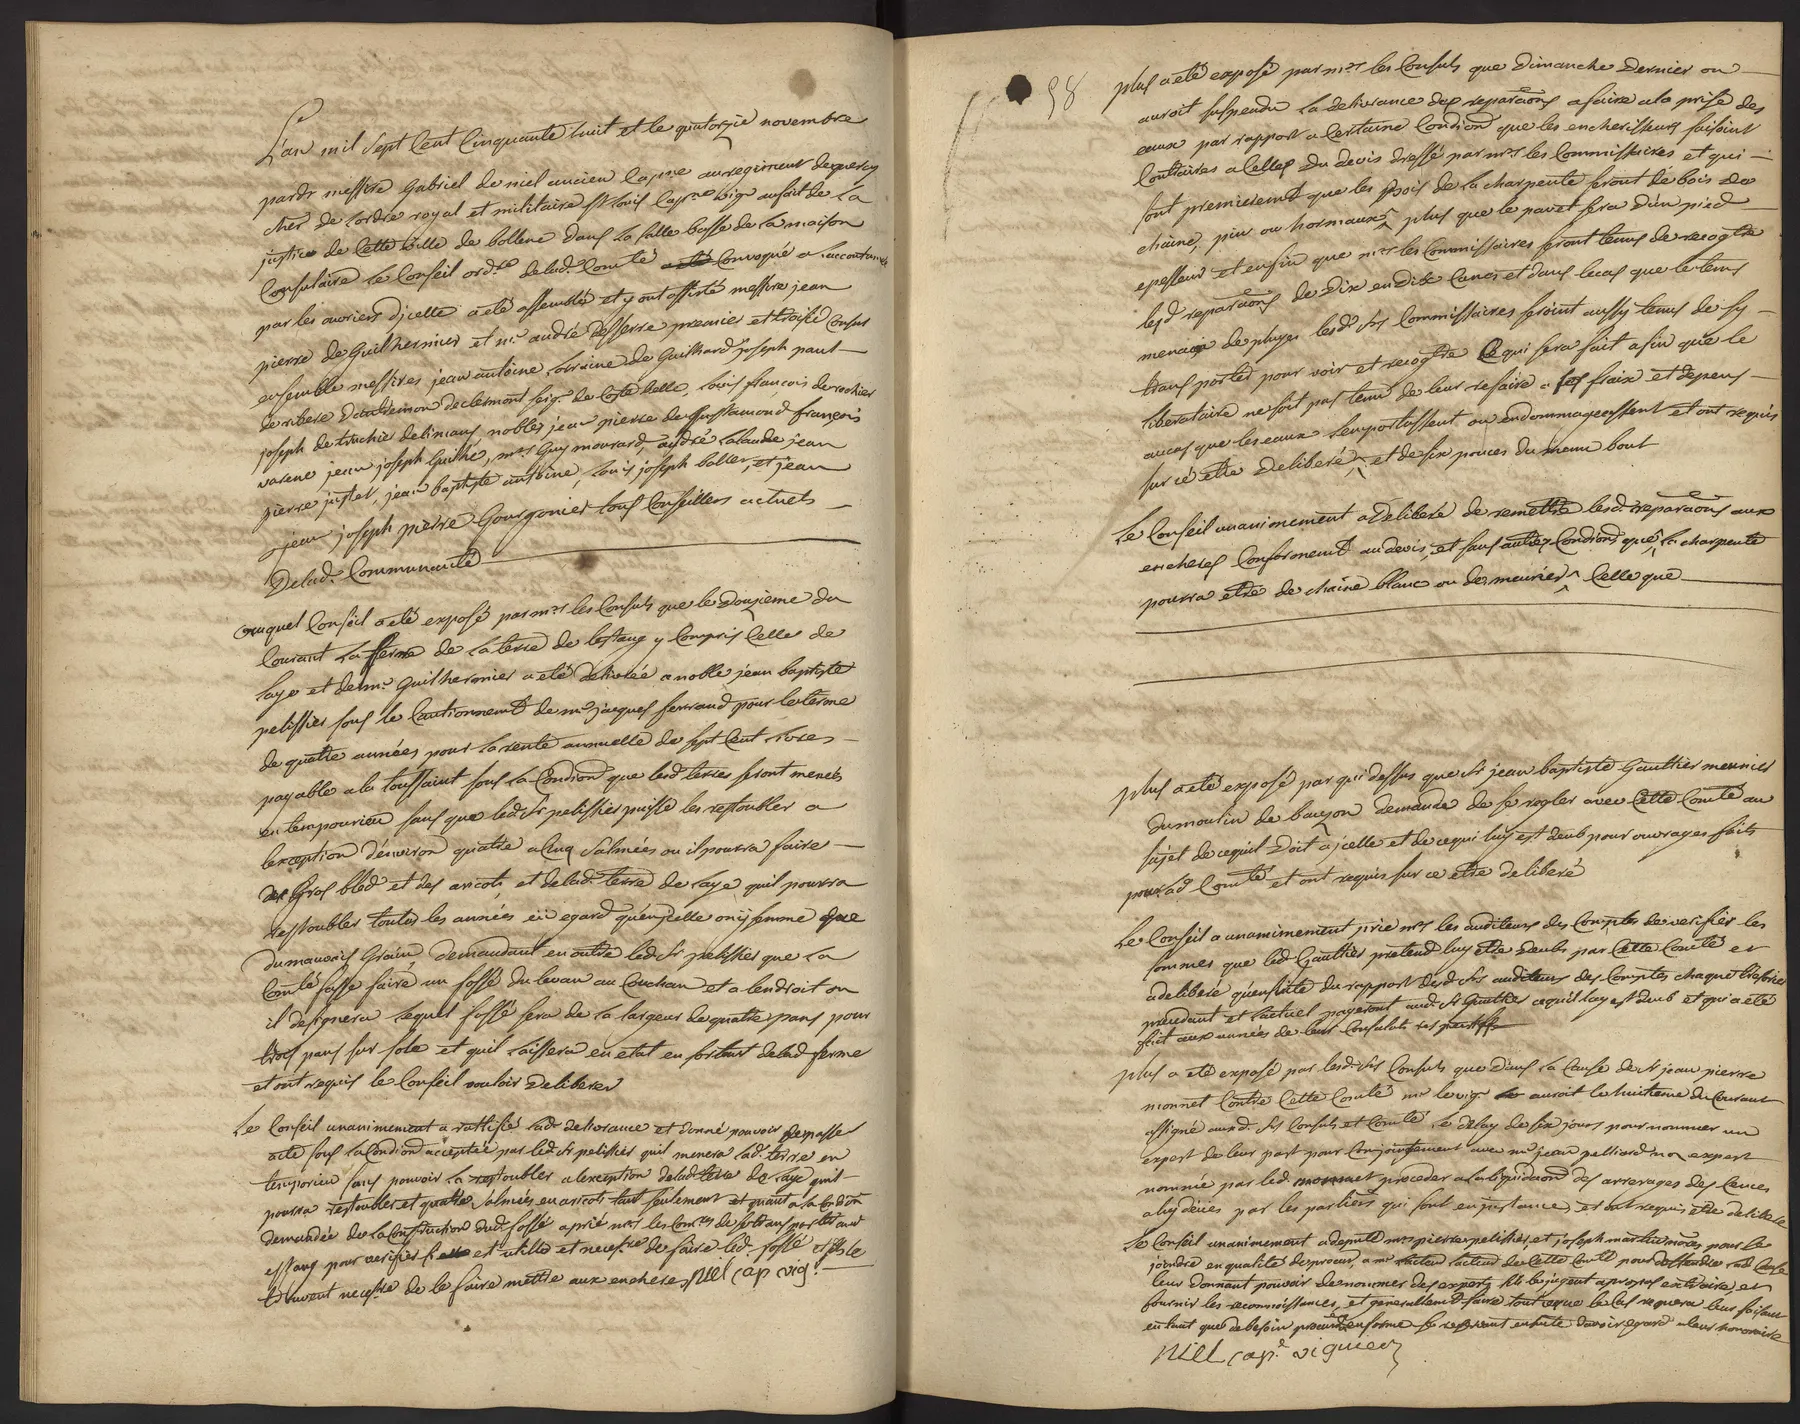 L'an mil sept Cent Cinquante huit et le quatorzie novembre
pardt messire Gabriel de niel ancien Capne au regiment dequercy
cher de lordre royal et militaire st Louis Capne vigr aufait de La
justice de Cette ville de bollene dans La salle basse de La maison
Consulaire Le Conseil ordre delad. Comté Convoqué a laccoutumé
par les ouvriers dicelle a eté assemblé et y ont assisté messire jean
pierre de Guilhermier et mr andré desserre premier et troisie Consuls
ensemble messires jean antoine Lorraine de Guilhard joseph paul
de ribere dentremon declermont seigr de Coste belle, Louis françois de rochier
joseph de truchier delimans, nobles jean pierre de françois
varene jean joseph Guilhe, mrs Guy mourard, andré Lalande jean
pierre juster, jean baptiste antoine, Louis joseph baller, et jean
jean joseph pierre Gourgonier tous Conseillers actuels
Delad. Communauté
auquel Conseil a eté exposé par mrs les Consuls que le Douzieme du
Courant La ferme de La terre de lestang y Compris Celle de
laye et demr Guilhermier a eté delivrée a noble jean baptiste
pelissier sous le Cautionnemt de mr jacques ferrand pour le terme
de quatre années pour La rente annuelle de sept Cent Livres
payable a la toussaint sous La Condion que lesd. terres seront menées
en temporieu sans que led. Sr pelissier puisse les restoubler a
lexception denviron quatre a Cinq Salmées ou il pourra faire
Gros bled et des aricots, et delad. terre de Laye quil pourra
restoubler toutes les années en egard quen icelle on y semme que
du mauvais Grain, demandant en outre led. Sr pelissier que La
Comté fasse faire un fossé du levan au Couchan et a lendroit ou
il designera Lequel fossé sera de La largeur de quatre pans pour
trois pans sur sole et quil Laissera en etat en sortant delad. ferme
et ont requis le Conseil vouloir deliberer
Le Conseil unanimement a rattifié lad. delivrance et donné pouvoir de passer
acte sous La Condion acceptée par led. Sr pelissier quil menera lad. terre en
temporieu sans pouvoir La restoubler a lexception delad. terre de Laye quil
pourra restoubler et quatre Salmées en aricots tant seulement et quant a la Condion
demandée de La Construction dud. fossé a prié mrs les Comres de se transporter aud.
estang pour verifier est utile et necesre de faire led. fossé et sils le
trouvent necesre de le faire mettre aux encheres Niel cap vigr
98
plus a eté exposé par mrs les Consuls que dimanche dernier on
auroit suspendu La delivrance des reparaons a faire a la prise des
eaux par rapport a Certaine Condion que les encherisseurs faisoint
Contraires a Celles du devis dressé par mrs les Commissaires et qui
sont premieremt que les bois de la charpente seront de bois de
chaine, pin ou hormeaux plus que le pavet sera d'un pied
epesseur et enfin que mrs les Commissaires seront tenus de recogtre
lesd. reparaons de dix en dix Canes et dans le cas que le tems
menace de pluyes lesd. Srs Commissaires seroint aussy tenus de sy
transporter pour voir et recogtre Ce qui sera fait afin que le
liberataire ne soit pas tenu de leur refaire a ses fraix et depens
aucas que les eaux lemportassent ou endommageassent et ont requis
sur ce etre deliberé et de six pouces du menu bout
Le Conseil unanimement a Deliberé de remettre lesd. reparaons aux
encheres Conformemt au devis, et sans autres Condions que la charpente
pourra etre de chaine blanc ou de meurier Celle que
plus a eté exposé par qui dessus que Sr jean baptiste Gaultier meunier
du moulin de bauzon demande de se regler avec Cette Comté au
sujet de cequil doit a icelle et de cequi luy est deub pour ouvrages faits
pour lad. Comté et ont requis sur ce etre deliberé
Le Conseil a unanimement prié mrs les auditeurs des Comptes de verifier les
sommes que led. Gaultier pretend luy etre deubs par Cette Comté et
a deliberé quensuite du rapport desd. Srs auditeurs des Comptes chaque tresorier
precedant et lactuel payeront aud. Sr Gaultier cequil luy est deub et qui a eté
fait aux années de leur Consulat respectif
plus a eté exposé par lesd. Srs Consuls que dans La Cause de Sr jean pierre
monnet Contre Cette Comté mr le vigr auroit le huitieme du Courant
assigné auxd. Srs Consuls et Comté le delay de six jours pour nommer un
expert de leur part pour Conjointement avec mr jean pelliard nore expert
nommé par led. monnet proceder a la liquidaon des arrerages des Cences
a luy deues par les partiers qui sont en instance, et ont requis etre deliberé
Le Conseil unanimement a deputé mrs pierre pelissier et joseph martin nores pour se
joindre en qualité de procur. a mr acteur de Cette Comté pour deffendre lad. Cause
leur donnant pouvoir de nommer des experts sils le jugent apropos en traire, et
fournir les reconnoissances, et generallemt faire tout ceque le Cas requera leur faisant
en tant que de besoin procuron en forme se reservant ensuite davoir egard a leur honoraire
Niel capne viguier